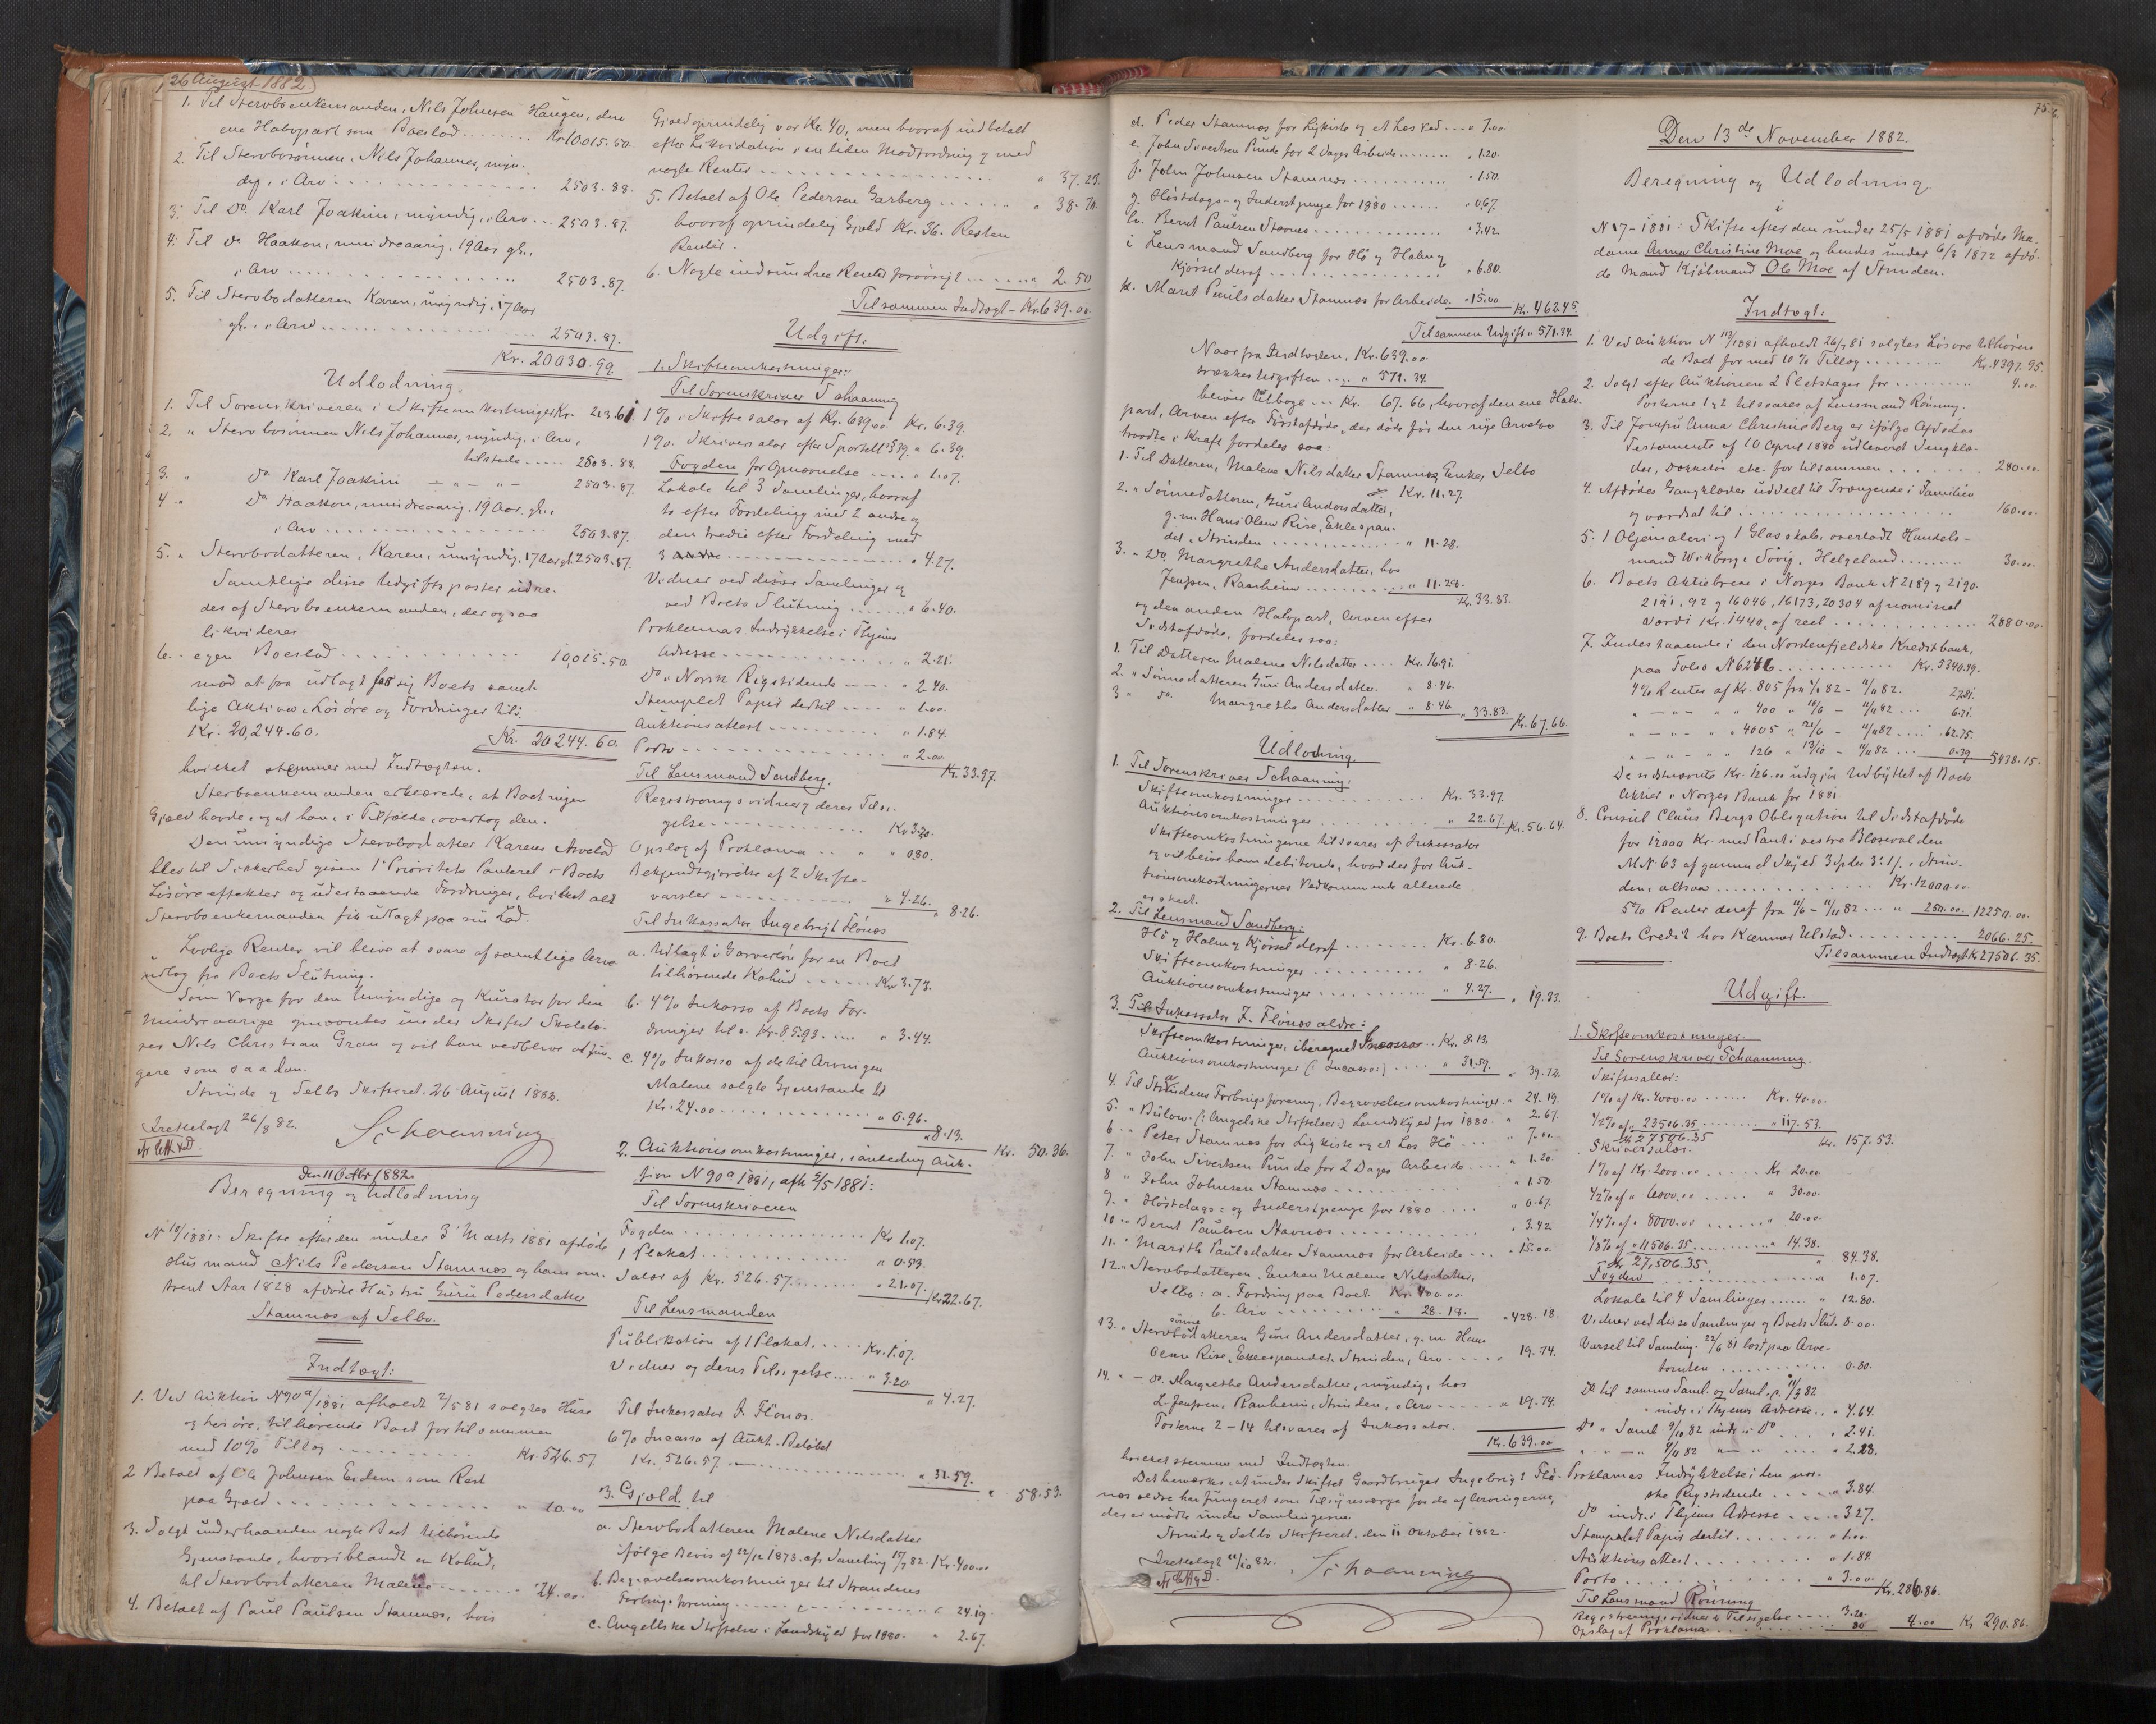 26 August 1882
1. Til Stervboenkemanden, Nils Johnsen Haugen, den
ene Halvpart som Boeslod ........ Kr. 10015.50.
2. Til Stervbosönnen, Nils Johannes, myn-
dig, i Arv ............ 2503.88.
3. Til Do. Karl Joakim, myndig, i Arv ... 2503.87.
4. Til Do Haakon, mindreaarig, 19 Aar gl.,
i Arv ............ 2503.87.
5. Til Stervbodatteren Karen, umyndig, 17 Aar
gl., i Arv ............ 2503.87.
Kr. 20030.99.
Udlodning.
1. Til Sorenskriveren i Skifteomkostninger Kr. 213.61
2. " Stervbosönnen Nils Johannes, myndig, i Arv,
tilstede ..... 2503.88.
3. " Do Karl Joakim — " — " — 2503.87.
4 " Do Haakon, mindreaarig, 19 Aar gl.,
i Arv ............ 2503.87.
5. " Stervbodatteren, Karen, umyndig, 17 Aar gl. 2503.87.
Samtlige disse Udgiftsposter udre-
des af Stervboenkemanden, der ogsaa
likvideres
6. egen Boeslod ............ 10,015.50.
mod at faa udlagt for sig Boets samt-
lige Aktiver, Lösöre og Fordringer til:
Kr. 20,244.60.
Kr. 20244.60.
hvilket stemmer med Indtægten.
Stervboenkemanden erklærede, at Boet ingen
Gjæld havde, og at han, i Tilfælde, overtog den.
Den umyndige Stervbodatter Karens Arvelod
blev til Sikkerhed given 1ste Prioritets Panteret i Boets
Lösöreeffekter og udestaaende Fordringer, hvilket alt
Stervboenkemanden fik udlagt paa sin Lod.
Lovlige Renter vil blive at svare af samtlige Arve
udlog fra Boets Slutning.
Som Værge for den Umyndige og Kurator for den
Mindreaarige opnævntes under Skiftet Skolelæ-
rer Nils Christian Gran og vil han vedblive at fun-
gere som saadan.
Strinde og Selbo Skifteret, 26 August 1882.
Irettelagt 26/8 82.
Schaanning
Den 11 Octbr 1882.
Beregning og Udlodning
i
No 10/1881: Skifte efter den under 3die Marts 1881 afdöde
Husmand Nils Pedersen Stamnæs og hans om-
trent Aar 1828 afdöde Hustru Guru Pedersdatter
Stamnæs af Selbo.
Indtægt:
1. Ved Auktion N 90a/1881 afholdt 2/5 81 solgtes Huse
og Lösöre, tilhörende Boet for tilsammen
med 10% Tillæg ............ Kr. 526.57
2 Betalt af Ole Johnsen Eidem som Rest
paa Gjæld ............ " 10.00
3. Solgt underhaanden nogle Boet tilhörende
Gjenstande, hvoriblandt en Kohud,
til Stervbodatteren Malene ........ 24.00
4. Betalt af Paul Paulsen Stamnæs, hvis
Gjæld oprindelig var Kr. 40, men hvoraf indbetalt
efter Likvidation i en liden Modfordring og med
nogle Renter ............ " 37.23.
5. Betalt af Ole Pedersen Garberg ...... " 38.70.
hvoraf oprindelig Gjæld Kr. 36. Resten
Renter.
6. Nogle indvundne Renter forövrigt ...... " 2.50
Tilsammen Indtægt - Kr. 639.00
Udgift:
1. Skifteomkostninger:
Til Sorenskriver Schaanning
1% i Skiftesalær af Kr. 639.00 Kr. 6.39.
1% Skriversalær efter Sportell § 39. " 6.39.
Fogden for Opnævnelse .... " 1.07.
Lokale til 3 Samlinger, hvoraf
to efter Fordeling med 2 andre og
den tredie efter Fordeling med
3 andre ............ " 4.27.
Vidner ved disse Samlinger og
ved Boets Slutning ....... " 6.40.
Proklamas Indrykkelse i Thjems
Adresse ............ " 2.21.
Do i Norsk Rigstidende .... " 2.40.
Stemplet Papir dertil .... " 1.00.
Auktionsattest ............ " 1.84.
Porto ............ " 2.00
Kr. 33.97.
Til Lensmand Sandberg.
Registreringsvidner og deres Tilsi-
gelse ............ Kr 3.20.
Opslag af Proklama .. " 0.80.
Bekjendtgjörelse af 2 Skifte-
varsler ............ " 4.26.
" 8.26.
Til Inkassator Ingebrigt Flönæs
a. Udlagt i Garverlön for en Boet
tilhörende Kohud ...... Kr. 3.73.
b. 4% Inkasso af Boets For-
dringer til s. Kr. 85.93 .... " 3.44.
c. 4% Inkasso af de til Arvingen
Malene solgte Gjenstande til
Kr. 24.00 ............ " 0.96.
" 8.13.
Kr. 50.36.
2. Auktionsomkostninger, i anledning Auk-
tion N 90a 1881, afh 2/5 1881:
Til Sorenskriveren
Fogden ............ Kr. 1.07.
1 Plakat ............ " 0.53.
Salær af Kr. 526.57 ....... " 21.07.
Kr. 22.67.
Til Lensmanden
Publikation af 1 Plakat ..... Kr. 1.07.
Vidner og deres Tilsigelse .... " 3.20
" 4.27.
Til Inkassator I. Flönæs.
6% Incasso af Aukt.-Belöbet
Kr. 526.57 ............ " 31.59.
" 58.53.
3. Gjæld til
a. Stervbodatteren Malene Nilsdatter
ifölge Bevis af 22/12 1873. afs Samling 17/7 82. Kr. 400.00
b. Begravelsesomkostninger til Strandens
Forbrugsforening ............ " 24.19.
c. Angellske Stiftelser i Landskyld for 1880. " 2.67.
75.
d. Peder Stamnæs for Ligkiste og et Læs Ved .... " 7.00.
e. John Sivertsen Punde for 2 Dages Arbeide ........ " 1.20.
f. John Johnsen Stamnæs ............ " 1.50.
g. Höstdags- og Inderstpenge for 1880 ...... " 0.67.
h. Bernt Paulsen Stavnes ............ " 3.42.
i Lensmand Sandberg for Hö og Halm og
Kjörsel deraf ............ " 6.80.
k. Marit Paulsdatter Stamnæs for Arbeide. " 15.00
Kr. 462.45.
Tilsammen Udgift " 571.34.
Naar fra Indtægten, Kr. 639.00
trækkes Udgiften .... " 571.34.
bliver tilbage ... Kr. 67.66, hvoraf den ene Halv-
part, Arven efter Förstafdöde, der döde för den nye Arvelov
traadte i Kraft fordeles saa:
1. Til Datteren, Malene Nilsdatter Stamnæs Enke, Selbo
Kr. 11.27.
2. " Sönnedatteren, Guri Andersdatter,
g. m. Hans Olsen Rise, Eklespan-
det, Strinden ............ " 11.28.
3. " Do. Margrethe Andersdatter, hos
Jenssen, Ranheim ............ " 11.28.
Kr. 33.83.
og den anden Halvpart, Arven efter
Sidstafdöde, fordeles saa:
1. Til Datteren Malene Nilsdatter .... Kr. 16.91.
2. " Sönnedatteren Guri Andersdatter. " 8.46.
3 " do. Margrethe Andersdatter " 8.46
" 33.83. Kr. 67.66.
Udlodning.
1. Til Sorenskriver Schaanning:
Skifteomkostninger ............ Kr. 33.97.
Auktionsomkostninger ............ " 22.67. Kr. 56.64.
Skifteomkostningerne tilsvares af Inkassator
og vil blive ham debiterede, hvad der for Auk-
tionsomkostningernes Vedkommende allerede
er skeet.
2. Til Lensmand Sandberg:
Hö og Halm og Kjörsel deraf ........ Kr. 6.80.
Skifteomkostninger ............ " 8.26.
Auktionsomkostninger ............ " 4.27.
" 19.33.
3. Til Inkassator I. Flönæs ældre:
Skifteomkostninger, iberegnet Incasso .. Kr. 8.13.
Auktionsomkostninger (: Incasso:) .... " 31.59.
" 39.72.
4. Til Strandens Forbrugsforening, Begravelsesomkostninger. " 24.19.
5. " Bülow (: Angelske Stiftelser:) Landskyld for 1880. " 2.67.
6 " Peter Stamnæs for Ligkiste og et Læs Hö .. " 7.00
7. " John Sivertsen Punde for 2 Dages Arbeide .... " 1.20
8 " John Johnsen Stamnæs ............ " 1.50.
9. " Höstdags- og Inderstpenge for 1880 .... " 0.67.
10. " Bernt Paulsen Stavnæs ............ " 3.42
11. " Marith Paulsdatter Stamnæs for Arbeide ... " 15.00
12. " Stervbodatteren, Enken Malene Nilsdatter,
Selbo: a. Fordring paa Boet Kr. 400.00
b. Arv ............ " 28.18.
" 428.18.
13. " Stervbosönnedatteren Guri Andersdatter, g. m. Hans
Olsen Rise, Eklespandet, Strinden, Arv .... " 19.74.
14. " — Do. Margrethe Andersdatter, myndig, hos
L. Jenssen, Ranheim, Strinden, i Arv ..... " 19.74.
Posterne 2 - 14 tilsvares af Inkassator.
Kr. 639.00
hvilket stemmer med Indtægten.
Det bemærkes, at under Skiftet Gaardbruger Ingebrigt Flö-
næs ældre har fungeret som Tilsynsværge for de af Arvingerne,
der ei mödte under Samlingerne.
Strinde og Selbo Skifteret, den 11 Oktober 1882.
Irettelagt 11/10 82.
Schaanning
Den 13de November 1882.
Beregning og Udlodning
i
N 17-1881: Skifte efter den under 25/5 1881 afdöde Ma-
dame Anna Christine Moe og hendes under 6/3 1872 afdö-
de Mand Kjöbmand Ole Moe af Strinden.
Indtægt:
1. Ved Auktion N 113/1881 afholdt 26/7 81 solgtes Lösöre tilhören-
de Boet for med 10% Tillæg ........ Kr. 4397.95.
2. Solgt efter Auktionen 2 Pletstager for ........ 4.00.
Posterne 1 og 2 tilsvares af Lensmand Rönning.
3. Til Jomfru Anna Christine Berg er ifölge Afdödes
Testamente af 10 April 1880 udleveret Sengklæ-
der, Dækketöi etc. for tilsammen ....... 280.00.
4. Afdödes Gangklæder uddelt til Trængende i Familien
og værdsat til ............ 160.00.
5. 1 Oljemaleri og 1 Glasskab, overladt Handels-
mand Wikborg i Sövig, Helgeland ........ 30.00.
6. Boets Aktiebreve i Norges Bank N 2189 og 2190.
2191, 92 og 16046, 16173, 20304 af nominel
Værdi Kr. 1440, af reel ............ 2880.00.
7. Indestaaende i den Nordenfjeldske Kreditbank,
paa Folio N 6246 ............ Kr. 5340.99.
4% Renter af Kr. 805 fra 1/1 82 - 11/11 82. 27.81.
" — " — " " 400 " 10/6 - 11/11 82 ... 6.71.
" — " — " " 4005 " 21/6 - 11/11 82 .... 62.75.
" — " — " " 126 " 13/10 - 11/11 82 ... 0.39 5438.15.
De sidstnævnte Kr. 126.00 udgjör Udbyttet af Boets
Aktier i Norges Bank for 1881
8. Consul Claus Bergs Obligation til Sidstafdöde
for 12000 Kr. med Pant i vestre Blosevolden
M.N. 63 af gammel Skyld 3 Spdr 3 . 1/., Strin-
den, altsaa ............ Kr. 12000.00.
5% Renter deraf fra 11/6 - 11/11 82 ... " 250.00. 12250.00.
9. Boets Credit hos Kæmner Ulstad ............ 2066.25.
Tilsammen Indtægt Kr 27506.35.
Udgift.
1. Skifteomkostninger.
Til Sorenskriver Schaanning.
Skiftesallær:
1% af Kr. 4000.00 ...... Kr. 40.00.
1/2% af " 23506.35 ...... " 117.53.
Kr 27506.35
Kr. 157.53.
Skriversalær.
1% af Kr. 2000.00 ..... Kr 20.00
1/2% af " 6000.00 ..... " 30.00.
1/4% af " 8000.00 ...... " 20.00.
1/8% af " 11506.35 ........ " 14.38.
Kr 27,506.35.
" 84.38.
Fogden ............ " 1.07.
Lokale til 4 Samlinger ...... " 12.80.
Vidner ved disse Samlinger og Boets Slut. 8.00.
Varsel til Samling 22/6 81 læst paa Arve-
tomten ............ 0.80.
Do til samme Saml. og Saml. d. 11/3 82
indr. i Thjems Adresse .. " 4.64.
Do " Saml. 9/10 82 indr. i Do .... " 2.41.
" — " — 9/11 82 " — " .... " 2.23.
Proklamas Indrykkelse i den nor-
ske Rigstidende .... " 3.84.
Do indr. i Thjems Adresse .... " 3.27.
Stemplet Papir dertil ...... " 1.00.
Auktionsattest ............ " 1.84.
Porto ............ " 3.00.
Kr. 286.86.
Til Lensmand Rönning
Registreringsvidner & Tilsigelse .... 3.20
Opslag af Proklama ............ 80
4.00 Kr 290.86.